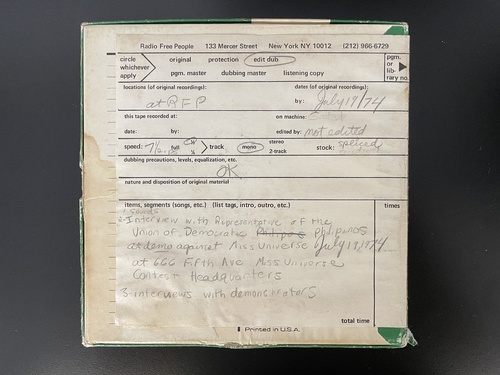 Radio Free People 133 Mercer Street New York NY 10012 (212) 966-6729
circle whichever apply
original protection edit dub
pgm. master dubbing master listening copy
pgm. or library no.
locations (of original recordings): dates (of original recordings):
at RFP by: July 19/74
this tape recorded at: on machine:
date: by: edited by: not edited
speed: 7½ full ½ ¼ track mono stereo 2-track stock: spliced
dubbing precautions, levels, equalization, etc.
OK
nature and disposition of original material
items, segments (songs, etc.) (list tags, intro, outro, etc.) times
1 sounds
2 Interview with Representative of the
Union of Democratic Philipos Philipinos
at demo against Miss Universe July 19, 1974
at 666 Fifth Ave Miss Universe
Contest Headquarters
3- interviews with demonstrators
total time
Printed in U.S.A.